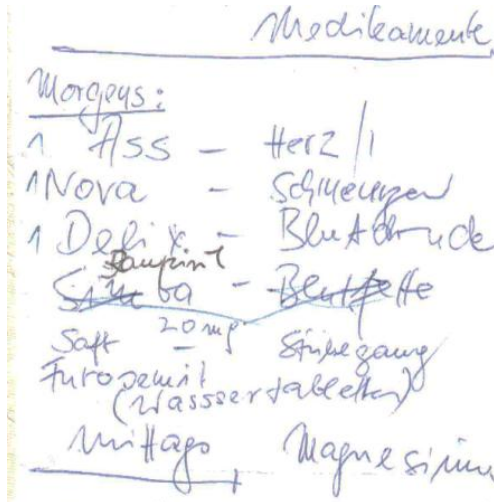 Medikamente
Morgens:
1 Ass - Herz
1 Nova - Schmerzen
1 Delix - Blutdruck
Simba - Blutfette
20 mg
Saft - Stuhlgang
Furosemit
(Wasssertabletten)
Mittags, Magnesium